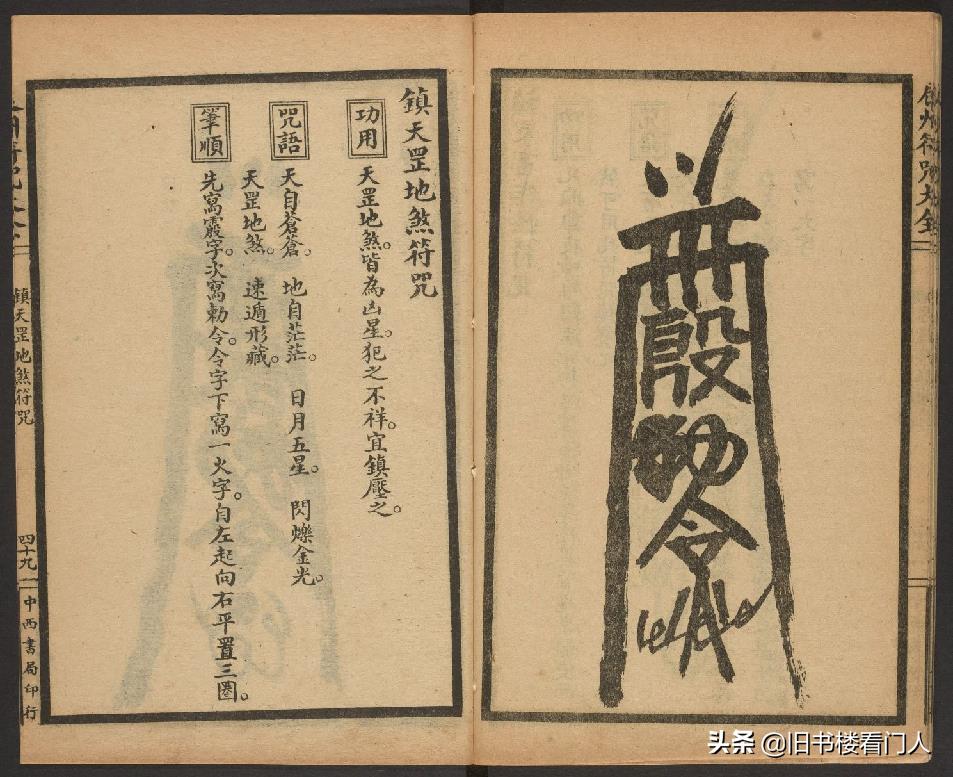 勅令
鎮天罡地煞符咒
功用
天罡地煞。皆為凶星。犯之不祥。宜鎮壓之。
咒語
天自蒼蒼。 地自茫茫。 日月五星。 閃爍金光。
天罡地煞。 速遁形藏。
筆順
先寫字。次寫勅令。令字下寫一火字。自左起向右平置三圈。
鎮天罡地煞符咒
四十九
中西書局印行
头条 @旧书楼看门人